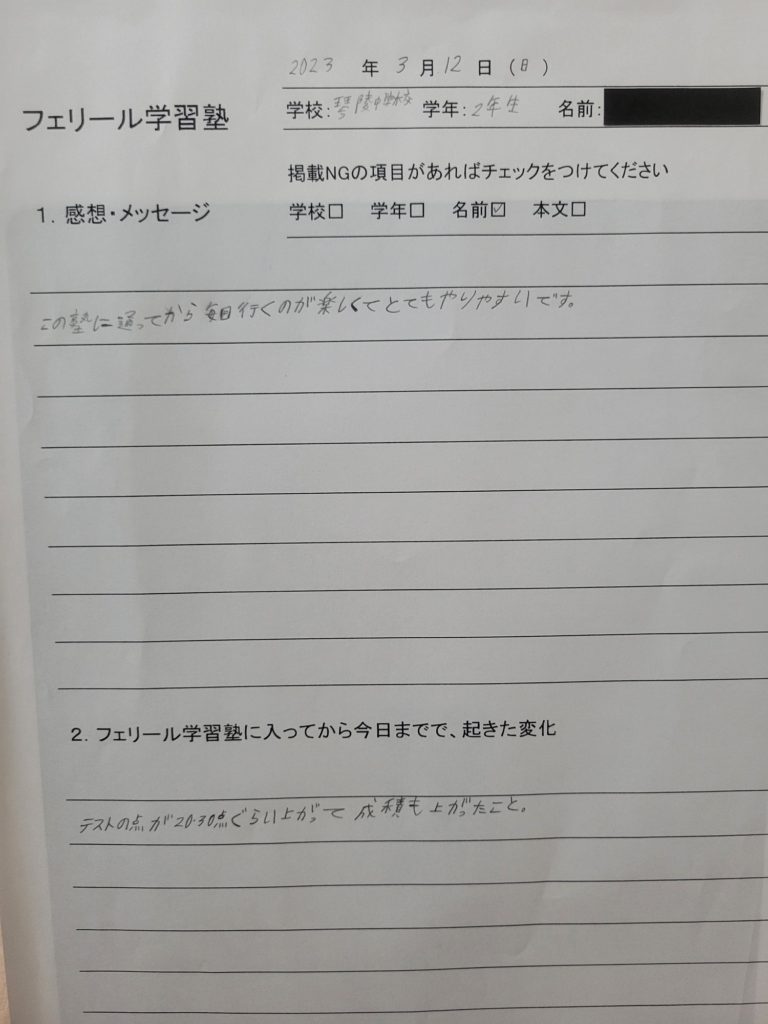 2023 年 3 月 12 日 (日)
フェリール学習塾
学校:琴陵中学校 学年:2年生 名前:
掲載NGの項目があればチェックをつけてください
1. 感想・メッセージ
学校□ 学年□ 名前☑ 本文□
この塾に通ってから毎日行くのが楽しくてとてもやりやすいです。
2. フェリール学習塾に入ってから今日までで、起きた変化
テストの点が20.30点ぐらい上がって成積も上がったこと。